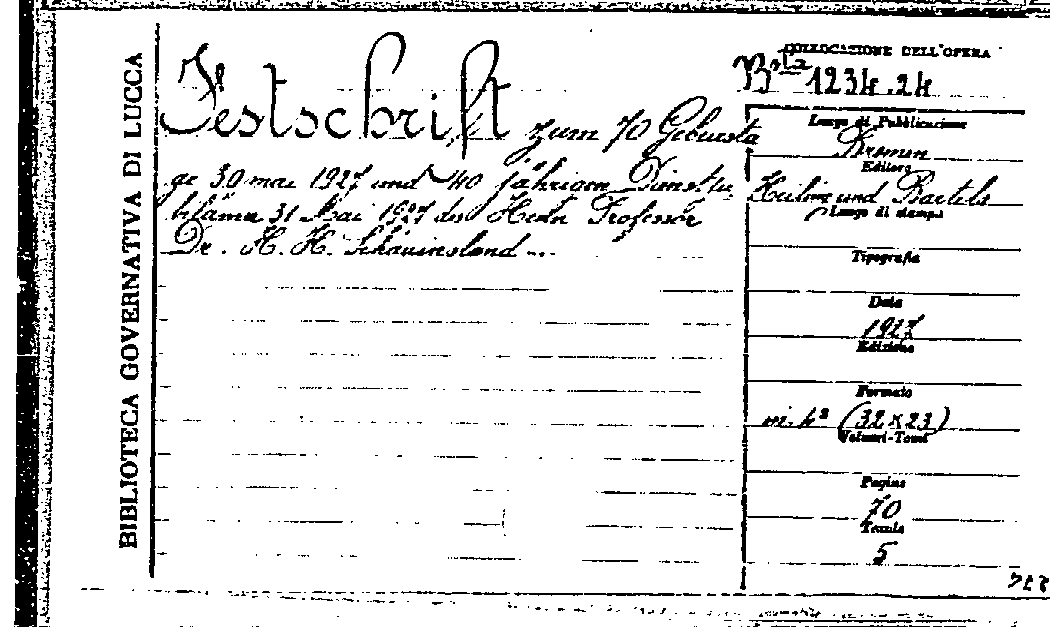 BIBLIOTECA GOVERNATIVA DI LUCCA
Festschrift zum 70 Geburtsta
ge 30 mai 1927 und 40 jährigen Dienstju
biläum 31 Mai 1927 des Herrn Professor
Dr. H. H. Schauinsland ...
COLLOCAZIONE DELL'OPERA
Bta 1234.24
Luogo di Pubblicazione
Bremen
Editore
und Bartels
Luogo di stampa
Tipografia
Data
1927
Edizione
Formato
in. 4° (32 x 23)
Volumi-Tomi
Pagine
70
Tavole
5